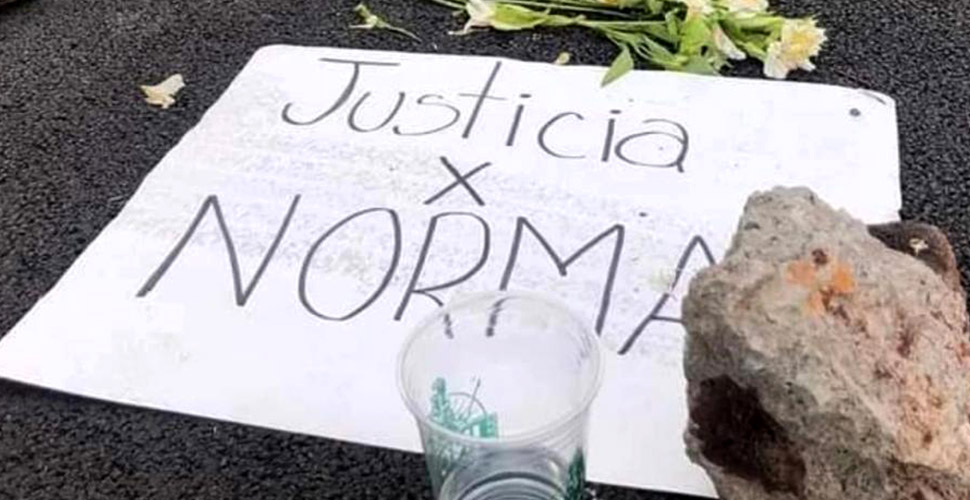 Justicia
x
NORMA